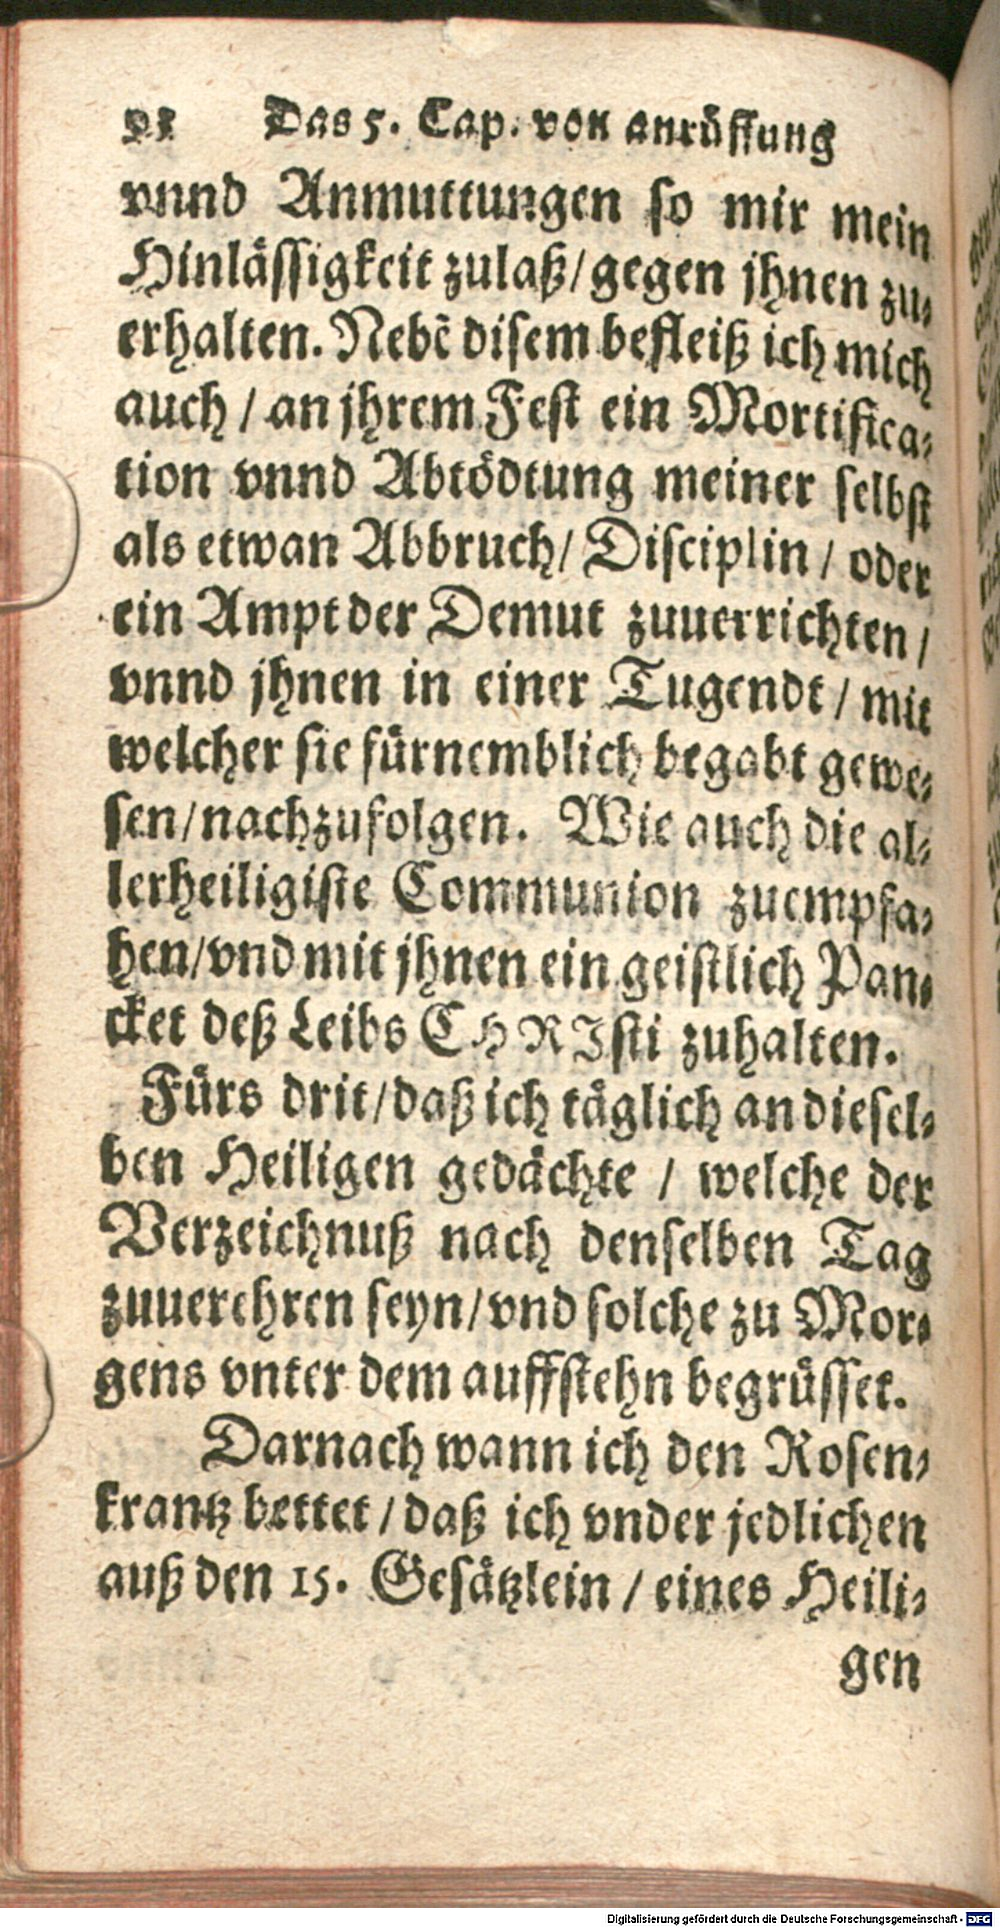 Das 5. Cap. von anrüffung
vnnd Anmuttungen so mir mein
Hinlässigkeit zulaß / gegen jhnen zu⸗
erhalten. Nebē disem befleiß ich mich
auch / an jhrem Fest ein Mortifica⸗
tion vnnd Abtödtung meiner selbst
als etwan Abbruch / Disciplin / oder
ein Ampt der Demut zuuerrichten /
vnnd jhnen in einer Tugendt / mit
welcher sie fürnemblich begabt gewe⸗
sen / nachzufolgen. Wie auch die al⸗
lerheiligiste Communion zuempfa⸗
hen / vnd mit jhnen ein geistlich Pan⸗
cket deß Leibs CHRIsti zuhalten.
Fürs drit / daß ich täglich an diesel⸗
ben Heiligen gedächte / welche der
Verzeichnuß nach denselben Tag
zuuerehren seyn / vnd solche zu Mor⸗
gens vnter dem auffstehn begrüsset.
Darnach wann ich den Rosen⸗
krantz bettet / daß ich vnder jedlichen
auß den 15. Gesätzlein / eines Heili⸗
gen
Digitalisierung gefördert durch die Deutsche Forschungsgemeinschaft - DFG